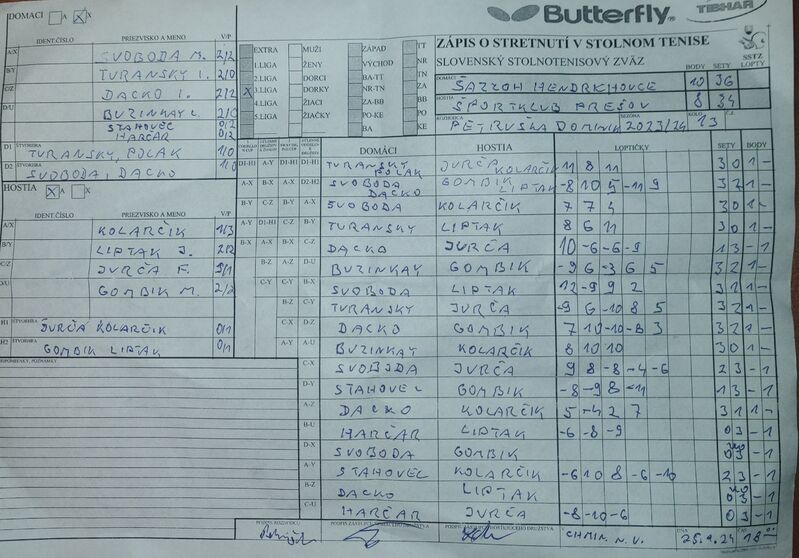 DOMACI A X
Butterfly
TIBHAR
IDENT.ČÍSLO PRIEZVISKO A MENO V/P
A/X SVOBODA M. 2/2
B/Y TURANSKY I. 2/0
C/Z DACKO I. 2/2
D/U BUZINKAY L. 2/0
STAHOVEC 0/2
HARČAR 0/2
D1 ŠTVORHRA TURANSKY, POLAK 1/0
D2 ŠTVORHRA SVOBODA, DACKO 1/0
HOSTIA A X
IDENT.ČÍSLO PRIEZVISKO A MENO V/P
A/X KOLARČIK 1/3
B/Y LIPTAK J. 2/2
C/Z JURČA F. 3/1
D/U GOMBIK M. 2/2
H1 ŠTVORHRA JURČA KOLARČIK 0/1
H2 ŠTVORHRA GOMBIK LIPTAK 0/1
PRIPOMIENKY, POZNÁMKY
EXTRA MUŽI ZÁPAD TT
1.LIGA ŽENY VÝCHOD NR
2.LIGA DORCI BA-TT TN
X 3.LIGA DORKY NR-TN ZA
4.LIGA ŽIACI ZA-BB BB
5.LIGA ŽIAČKY PO-KE PO
BA KE
ZÁPIS O STRETNUTÍ V STOLNOM TENISE
SLOVENSKÝ STOLNOTENISOVÝ ZVÄZ
SSTZ
BODY SETY LOPTY
DOMÁCI ŠAZZOH HENDRICHOVCE 10 36
HOSTIA ŠPORTKLUB PREŠOV 8 34
ROZHODCA PETRUŠKA DOMINIK 2023/24 13
DOMÁCI HOSTIA LOPTIČKY SETY BODY
D1-H1 TURANSKÝ POLAK JURČA KOLARČIK 11 8 11 3 0 1 -
SVOBODA DACKO GOMBIK LIPTAK -8 10 5 -11 9 3 2 1 -
SVOBODA KOLARČIK 7 7 4 3 0 1 -
TURANSKY LIPTAK 8 6 11 3 0 1 -
DACKO JURČA 10 -6 -6 -9 1 3 - 1
BUZINKAY GOMBIK -9 6 -3 6 5 3 2 1 -
SVOBODA LIPTAK 12 -9 9 2 3 1 1 -
TURANSKY JURČA -9 6 -10 8 5 3 2 1 -
DACKO GOMBIK 7 10 -10 -8 3 3 2 1 -
BUZINKAY KOLARČIK 8 10 10 3 0 1 -
C-X SVOBODA JURČA 9 8 -8 -4 -6 2 3 - 1
D-Y STAHOVEC GOMBIK -8 -9 8 -11 1 3 - 1
A-Z DACKO KOLARČIK 5 -4 2 7 3 1 1 -
B-U HARČAR LIPTAK -6 -8 -9 0 3 - 1
D-X SVOBODA GOMBIK 0 3 - 1
A-Y STAHOVEC KOLARČIK -6 10 8 -6 -10 2 3 - 1
B-Z DACKO LIPTAK 0 3 - 1
C-U HARČAR JURČA -8 -10 -6 0 3 - 1
PODPIS ROZHODCU
V CHMIN. N. V. DŇA 25.9.24 18